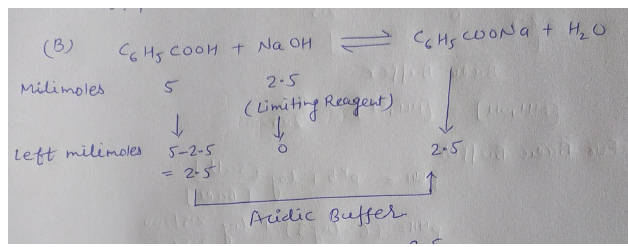 (B) C6H5COOH + NaOH ⇌ C6H5COONa + H2O
Milimoles 5 2.5
(Limiting Reagent)
↓ ↓ ↓
Left milimoles 5-2.5 0 2.5
= 2.5
Acidic Buffer